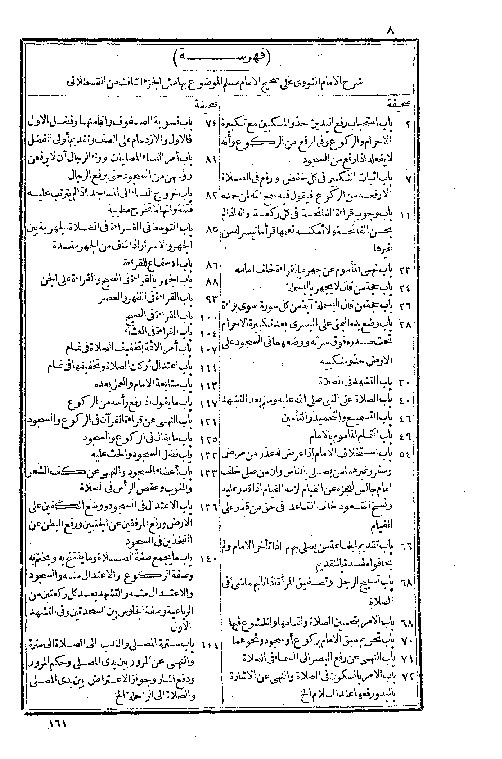 ٨
(فهرسة)
شرح الامام النووي على صحيح الامام مسلم الموضوع بهامش الجزء الثالث من القسطلاني
صحيفة
٢ باب استحباب رفع اليدين حذو المنكبين مع تكبيرة
الاحرام والركوع وفى الرفع من الركوع وأنه
لا يفعله اذا رفع من السجود
٧ باب اثبات التكبير فى كل خفض ورفع فى الصلاة
الا رفعه من الركوع فيقول فيه سمع الله لمن حمده
١١ باب وجوب قراءة الفاتحة فى كل ركعة وأنه اذا لم
يحسن الفاتحة ولا أمكنه تعلمها قرأ ما تيسر له من
غيرها
٢٣ باب نهى المأموم عن جهره بالقراءة خلف امامه
٢٤ باب حجة من قال لا يجهر بالبسملة
٢٦ باب حجة من قال البسملة آية من كل سورة سوى براءة
٢٨ باب وضع يده اليمنى على اليسرى بعد تكبيرة الاحرام
تحت صدره فوق سرته ووضعهما فى السجود على
الارض حذو منكبيه
٣٠ باب التشهد فى الصلاة
٤٠ باب الصلاة على النبى صلى الله عليه وسلم بعد التشهد
٤٦ باب التسميع والتحميد والتأمين
٤٩ باب ائتمام المأموم بالامام
٥٤ باب استخلاف الامام اذا عرض له عذر من مرض
وسفر وغيرهما من يصلى بالناس وان من صلى خلف
امام جالس لعجزه عن القيام لزمه القيام اذا قدر عليه
ونسخ القعود خلف القاعد فى حق من قدر على
القيام
٦٦ باب تقديم الجماعة من يصلى بهم اذا تأخر الامام ولم
يخافوا مفسدة بالتقديم
٦٨ باب تسبيح الرجل وتصفيق المرأة اذا نابهما شئ فى
الصلاة
٦٨ باب الامر بتحسين الصلاة واتمامها والخشوع فيها
٧٠ باب تحريم سبق الامام بركوع أو سجود ونحوهما
٧١ باب النهى عن رفع البصر الى السماء فى الصلاة
٧٢ باب الامر بالسكون فى الصلاة والنهى عن الاشارة
باليد ورفعها عند السلام الخ
صحيفة
٧٤ باب تسوية الصفوف واقامتها وفضل الاول
فالاول والازدحام على الصف وتقديم أولى الفضل
٨١ باب أمر النساء المصليات وراء الرجال أن لا يرفعن
رؤسهن من السجود حتى يرفع الرجال
٨٢ باب خروج النساء الى المساجد اذا لم يترتب عليه
فتنة وأنها لا تخرج مطيبة
٨٥ باب التوسط فى القراءة فى الصلاة الجهرية بين
الجهر والاسرار اذا خاف من الجهر مفسدة
٨٦ باب الاستماع للقراءة
٨٨ باب الجهر بالقراءة فى الصبح والقراءة على الجن
٩٣ باب القراءة فى الظهر والعصر
١٠٠ باب القراءة فى الصبح
١٠٤ باب القراءة فى العشاء
١٠٧ باب أمر الائمة بتخفيف الصلاة فى تمام
١١١ باب اعتدال أركان الصلاة وتخفيفها فى تمام
١١٣ باب متابعة الامام والعمل بعده
١١٧ باب ما يقول اذا رفع رأسه من الركوع
١٢١ باب النهى عن قراءة القرآن فى الركوع والسجود
١٢٥ باب ما يقال فى الركوع والسجود
١٣١ باب فضل السجود والحث عليه
١٣٣ باب أعضاء السجود والنهى عن كف الشعر
والثوب وعقص الرأس فى الصلاة
١٣٦ باب الاعتدال فى السجود ووضع الكفين على
الارض ورفع المرفقين عن الجنبين ورفع البطن عن
الفخذين فى السجود
١٤٠ باب ما يجمع صفة الصلاة وما يفتتح به ويختم به
وصفة الركوع والاعتدال منه والسجود
والاعتدال منه والتشهد بعد كل ركعتين من
الرباعية وصفة الجلوس بين السجدتين وفى التشهد
الاول
١٤٤ باب سترة المصلى والندب الى الصلاة الى سترة
والنهى عن المرور بين يدى المصلى وحكم المرور
ودفع المار وجواز الاعتراض بين يدى المصلى
والصلاة الى الراحلة الخ
١٦١